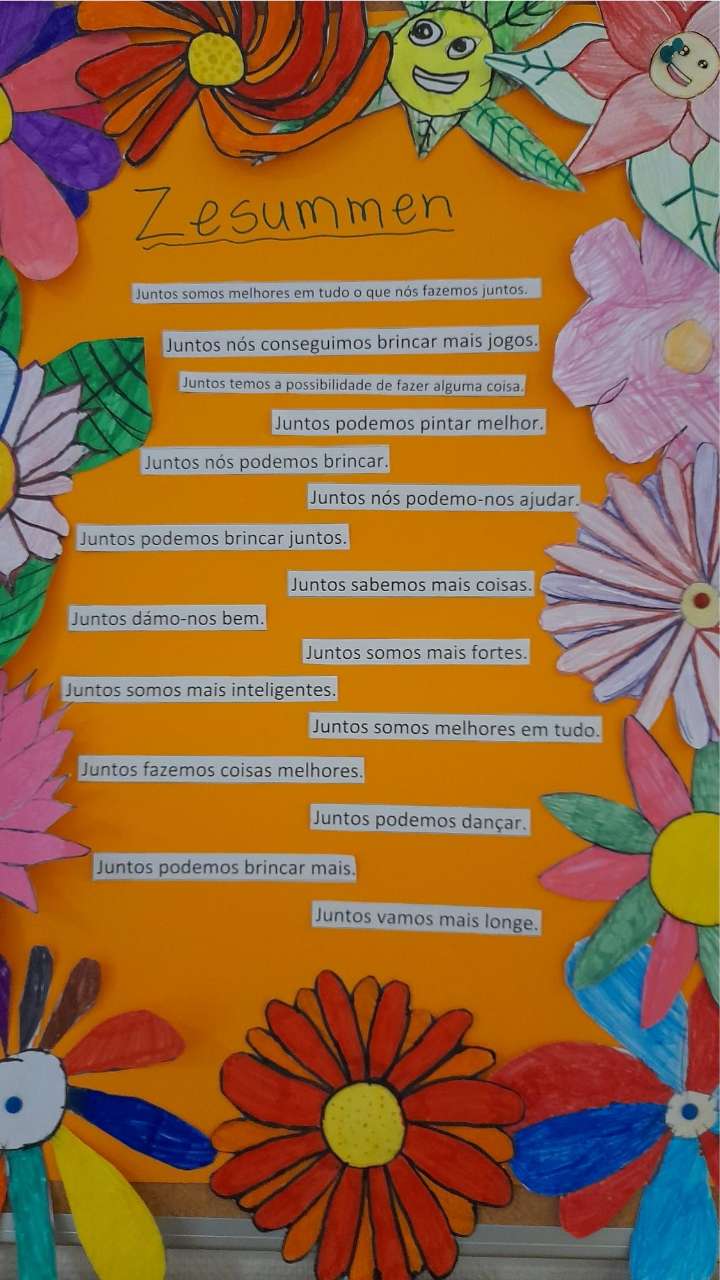 Zesummen
Juntos somos melhores em tudo o que nós fazemos juntos.
Juntos nós conseguimos brincar mais jogos.
Juntos temos a possibilidade de fazer alguma coisa.
Juntos podemos pintar melhor.
Juntos nós podemos brincar.
Juntos nós podemo-nos ajudar.
Juntos podemos brincar juntos.
Juntos sabemos mais coisas.
Juntos dámo-nos bem.
Juntos somos mais fortes.
Juntos somos mais inteligentes.
Juntos somos melhores em tudo.
Juntos fazemos coisas melhores.
Juntos podemos dançar.
Juntos podemos brincar mais.
Juntos vamos mais longe.